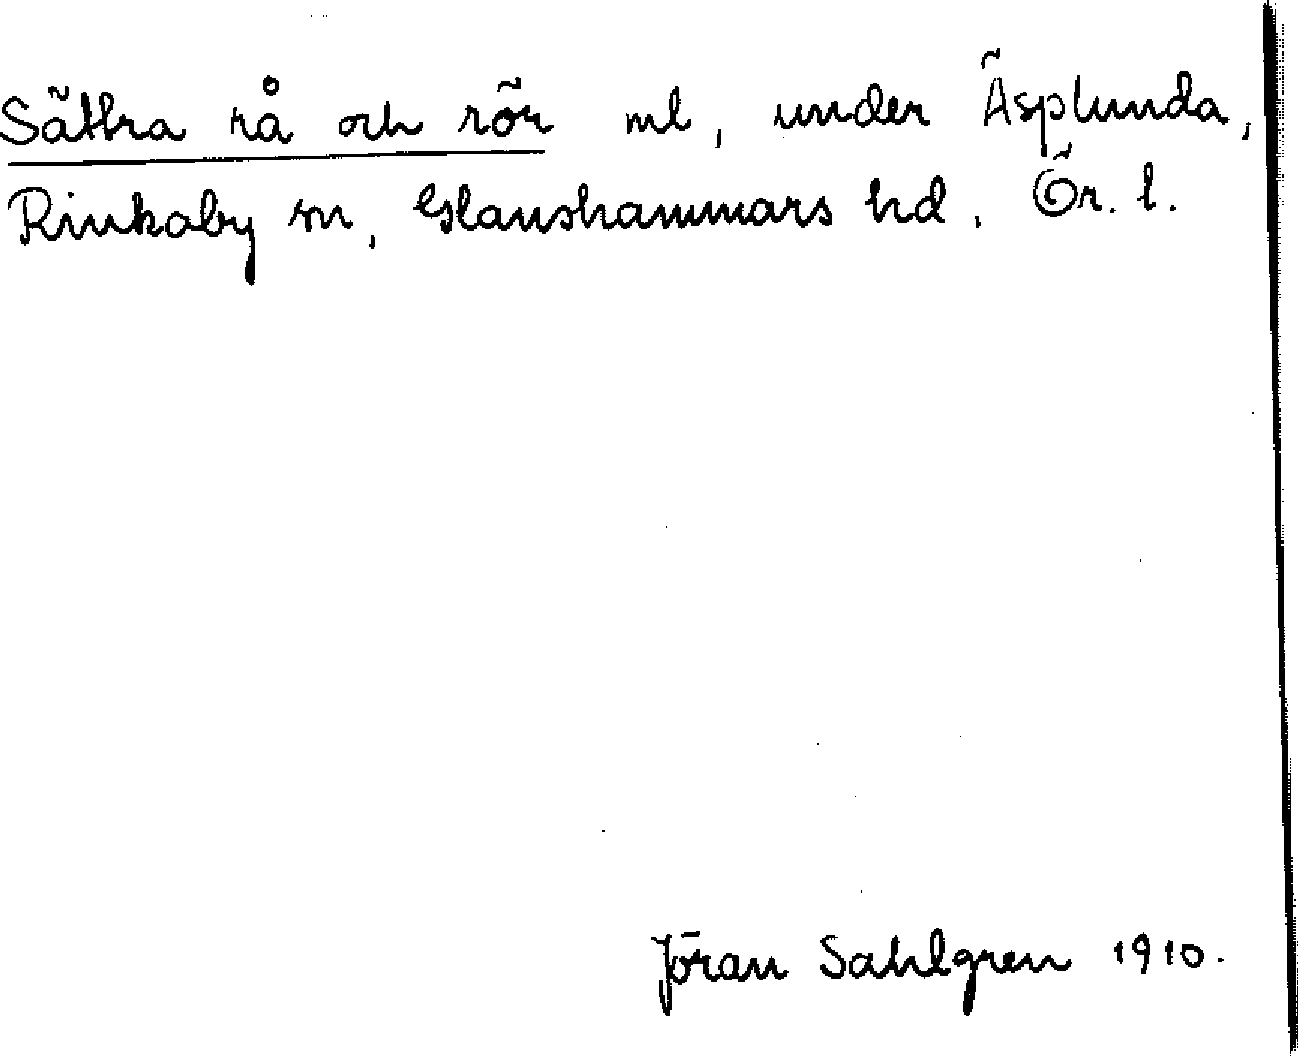 Sättra rå och rör ml, under Äsplunda,
Rinkaby sn, Glanshammars hd. Ör. l.
Jöran Sahlgren 1910.